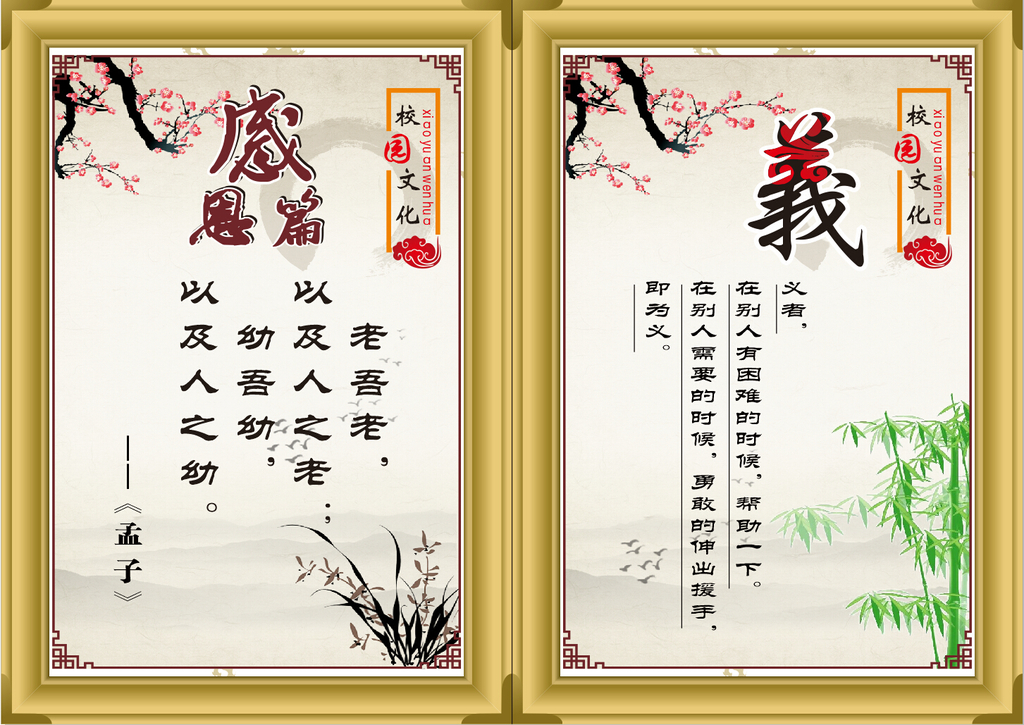 感恩篇
校园文化
xiao yuan wen hua
老吾老，
以及人之老；
幼吾幼，
以及人之幼。
——《孟子》
義
校园文化
xiao yuan wen hua
义者，
在别人有困难的时候，帮助一下。
在别人需要的时候，勇敢的伸出援手，
即为义。